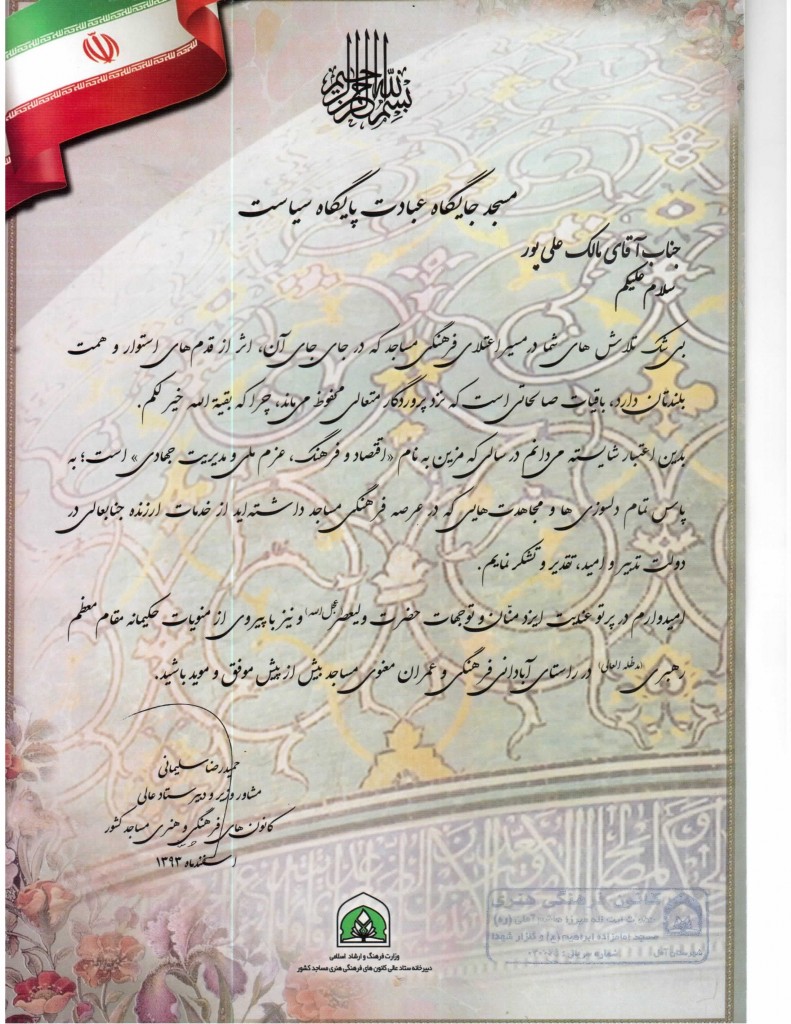 بسم الله الرحمن الرحیم
مسجد جایگاه عبادت پایگاه سیاست
جناب آقای مالک علی پور
سلام علیکم
بی شک تلاش های شما در مسیر اعتلای فرهنگی مساجد که در جای جای آن، اثر از قدم های استوار و همت
بلندتان دارد، باقیات صالحاتی است که نزد پروردگار متعالی محفوظ می‌ماند، چرا که بقیة الله خیر لکم.
بدین اعتبار شایسته می‌دانم در سالی که مزین به نام «اقتصاد و فرهنگ، عزم ملی و مدیریت جهادی» است؛ به
پاس تمام دلسوزی ها و مجاهدت‌هایی که در عرصه فرهنگی مساجد داشته‌اید از خدمات ارزنده جنابعالی در
دولت تدبیر و امید، تقدیر و تشکر نمایم.
امیدوارم در پرتو عنایت ایزد منّان و توجهات حضرت ولیعصر(عجل الله) و نیز با پیروی از منویات حکیمانه مقام معظم
رهبری (مدظله العالی) در راستای آبادانی فرهنگی و عمران معنوی مساجد بیش از پیش موفق و موید باشید.
حمیدرضا سلیمانی
مشاور وزیر و دبیر ستاد عالی
کانون های فرهنگی و هنری مساجد کشور
اسفندماه ۱۳۹۳
وزارت فرهنگ و ارشاد اسلامی
دبیرخانه ستاد عالی کانون های فرهنگی هنری مساجد کشور
کانون فرهنگی هنری
مسجد امامزاده ابراهیم (ع) و گلزار شهدا